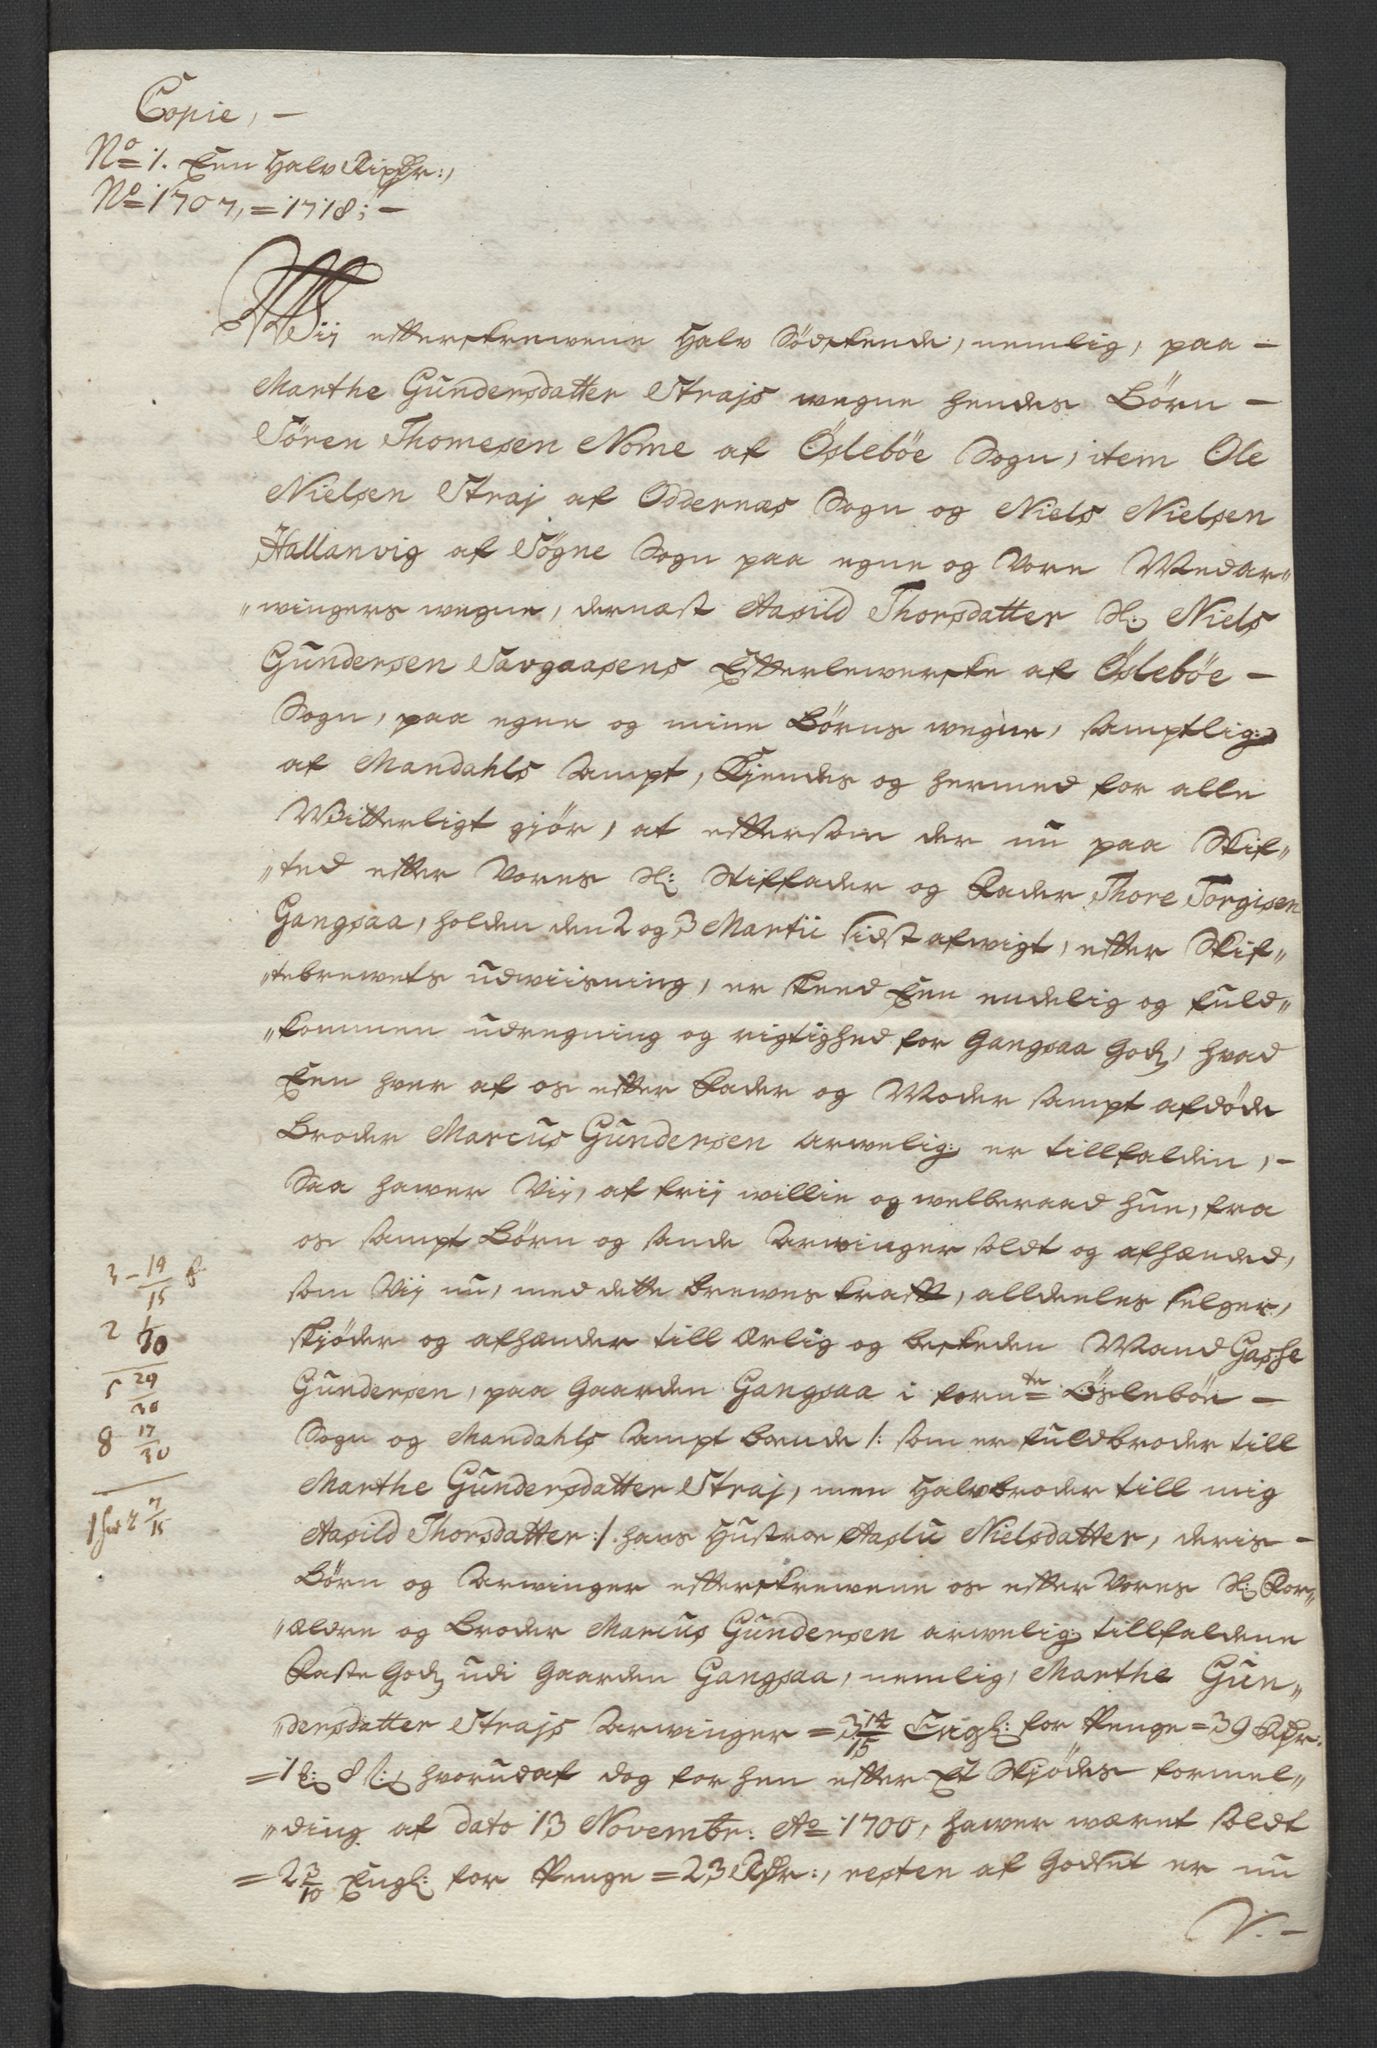 Copie, —
No 1. Een Halv Rixdr:,
No 1707, = 1718; —
Wii efterskrewene Halv Södskende, nemlig, paa —
Marthe Gundersdatter Strajs wegne hendes Börn —
Sören Thomesen Nome af Öslebøe Sogn, item Ole
Nielsen Straj af Oddernæs Sogn og Niels Nielsen
Hallanvig af Søgne Sogn paa egne og Vore Medar„
„wingers wegne, dernæst Aasild Thorsdatter Sl: Niels
Gundersen Savgaasens Efterlewerske af Öslebøe —
Sogn, paa egne og mine Börns wegne, samptlig:
af Mandahls Sampt, Kjendes og hermed for alle
Witterligt gjör, at eftersom der nu paa Skif„
„ted efter Vores Sl: Stiffader og Fader Thore Torgisen
Gangsaa, holden den 2 og 3 Martii sidst afwigt, efter Skif„
„tebrewets udwiisning, er skeed Een endelig og fuld„
„kommen udregning og rigtighed for Gangsaa Godz, hvad
Een hver af os efter Fader og Moder sampt afdöde
Broder Marcus Gundersen arwelig: er tillfalden, —
Saa hawer Vii, af frii willie og welberaad hue, fra
os sampt Börn og sande Arwinger soldt og afhænded,
som Vii nu, med dette brewes kraft, alldeeles selger,
skjöder og afhænder till Ærlig og beskeden Mand Gasshe
Gundersen, paa Gaarden Gangsaa i fornte Öslebøe —
Sogn og Mandahls Sampt boende /: som er fuldbroder till
Marthe Gundersdatter Straj, men Halvbroder till mig
Aasild Thorsdatter :/ hans Hustroe Aaslu Nielsdatter, deris —
Börn og Arwinger efterskrewene os efter Vores Sl: For„
„ældre og Broder Marcus Gundersen arwelig: tillfaldene
Faste Godz udi Gaarden Gangsaa, nemlig, Marthe Gun„
„dersdatter Strajs Arwinger = 3 14/15 Engl: for Penge = 39 Rdr:
= 1 8 s:, hvorudaf dog for hen efter Et Skjödes formel„
„ding af dato 13 Novembr: Ao 1700, hawer wæret soldt
= 2 3/10 Engl: for Penge = 23 Rdr:, resten af Godset er nu
V. —
3 – 14/15
2 1/30
5 29/30
8 17/30
2 7/15